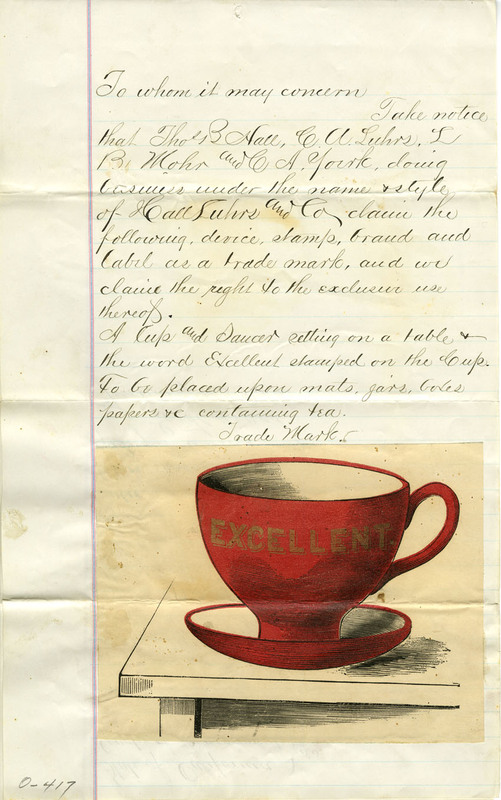 To whom it may concern
Take notice
that Thos B Hall, C. A. Luhrs, L
B. Mohr and C A. York, doing
business under the name & style
of Hall Luhrs and Co, claim the
following, device, stamp, brand and
label as a trade mark, and we
claim the right to the exclusive use
thereof.
A Cup and Saucer setting on a table &
the word Excellent stamped on the Cup.
To be placed upon mats, jars, boxes
papers &c containing tea.
Trade Mark.
EXCELLENT.
0-417